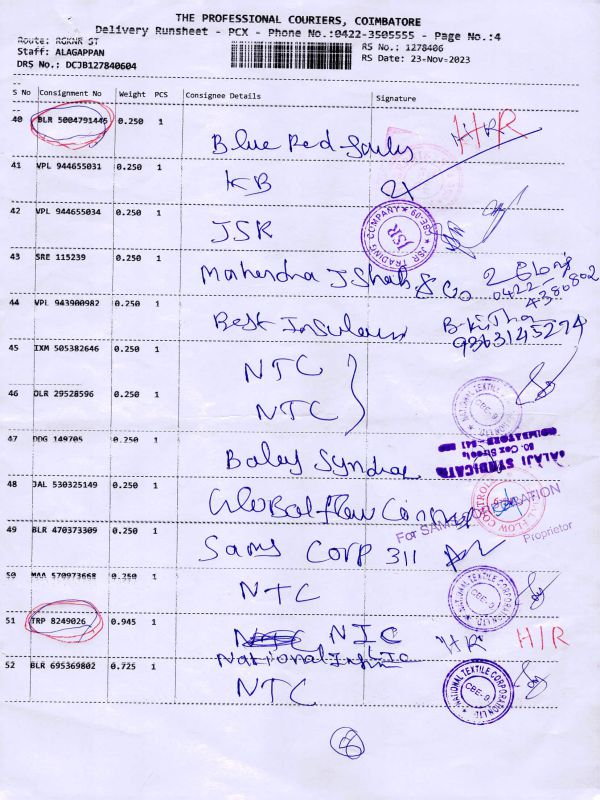 THE PROFESSIONAL COURIERS, COIMBATORE
Delivery Runsheet - PCX - Phone No.:0422-3505555 - Page No.:4
Route: RGKNR ST
Staff: ALAGAPPAN
DRS No.: DCJB127840604
RS No.: 1278406
RS Date: 23-Nov-2023
S No Consignment No Weight PCS Consignee Details Signature
40 BLR 5004791446 0.250 1 Blue Red H/R H/R
41 VPL 944655031 0.250 1 KB
42 VPL 944655034 0.250 1 JSR
JSR TRADING COMPANY ★ CBE-09 ★
JSR
43 SRE 115239 0.250 1 Mahendra J Shah & Co
0422
4380802
44 VPL 943900982 0.250 1 Best
9363145274
45 IXM 505382646 0.250 1 NTC
46 DLR 29528596 0.250 1 NTC
NATIONAL TEXTILE CORPORATION LTD
CBE-9
47 DDG 149705 0.250 1 Balaj
BALAJI SYNDICATE
COIMBATORE
48 JAL 530325149 0.250 1 Global flow
FLOW CONTROL
49 BLR 470373309 0.250 1 Sams Corp 311
For SAMS CORPORATION
Proprietor
50 MAA 570973668 0.250 1 NTC
NATIONAL TEXTILE CORPORATION LTD
CBE-9
51 TRP 8249026 0.945 1 NIC H/R H/R
National
52 BLR 695369802 0.725 1 NTC
NATIONAL TEXTILE CORPORATION LTD
CBE-9
8